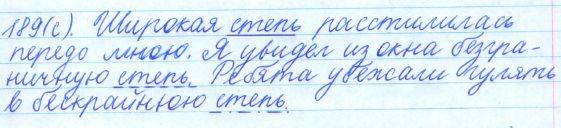 189(с). Широкая степь расстилилась
передо мною. Я увидел из окна безгра-
ничную степь. Ребята убежали гулять
в бескрайнюю степь.